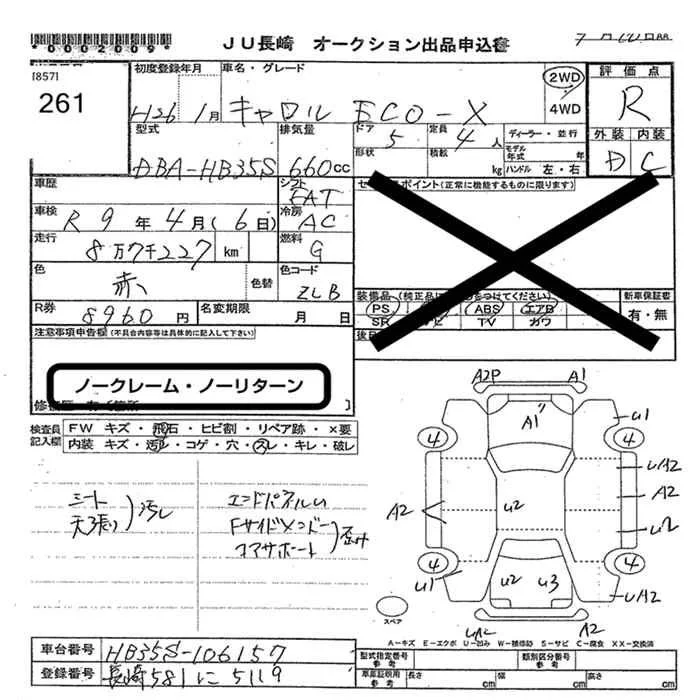 *0002009*
JU長崎 オークション出品申込書
[857]
261
初度登録年月 車名・グレード 2WD 4WD 評価点
H26 1月 キャロル ECO-X R
型式 排気量 ドア 5 定員 4人 ディーラー・並行 外装 内装
DBA-HB35S 660cc 形状 積載 kg モデル年式 年 ハンドル 左・右 D C
車歴 シフト FAT ポイント(正常に機能するものに限ります)
車検 R 9年 4月 (6日) 冷房 AC
走行 8万7千227 km 燃料 G
色 赤 色替 色コード ZLB 装備品 (純正品に つけてください) 新車保証書
R券 8960円 名変期限 月 日 PS ABS エアB 有・無
SR TV カワ
注意事項申告欄 (不具合内容等は具体的に記入して下さい)
ノークレーム・ノーリターン
検査員記入欄 FW キズ・飛石・ヒビ割・リペア跡・×要
内装 キズ・汚れ・コゲ・穴・スレ・キレ・破レ
シート 天張り 汚れ
エンドパネルu
Fサイドメンバー
コアサポート
A2P A1
A1
u1
4 4
uA2
A2 u2 A2
u2
4 4
u1 u2 u3 uA2
uA2 A2
スペア
A-キズ E-エクボ U-凹み W-補修跡 S-サビ C-腐食 XX-交換済
車台番号 HB35S-106157 型式指定番号 参考 類別区分番号 参考
登録番号 長崎581 に 5119 車庫証明用 参考 長さ cm 幅 cm 高さ cm